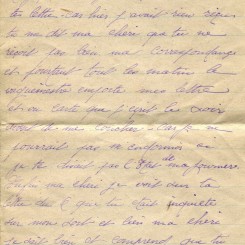 ta lettre, car hier j'avait rien reçu
tu me dit ma chérie que tu ne
reçoit pas bien ma correspondance
et pourtant tout les matin le
vaguemestre emporte mes lettre
et ou carte que j'ecrit le soir
avant de me coucher. Car je ne
pourrait pas m'endormir
si je ne
Enfin ma chérie je voit dans ta
lettre du 6 que tu était inquiète
sur mon sort et bien ma chérie
je doit bien et comprend que tu